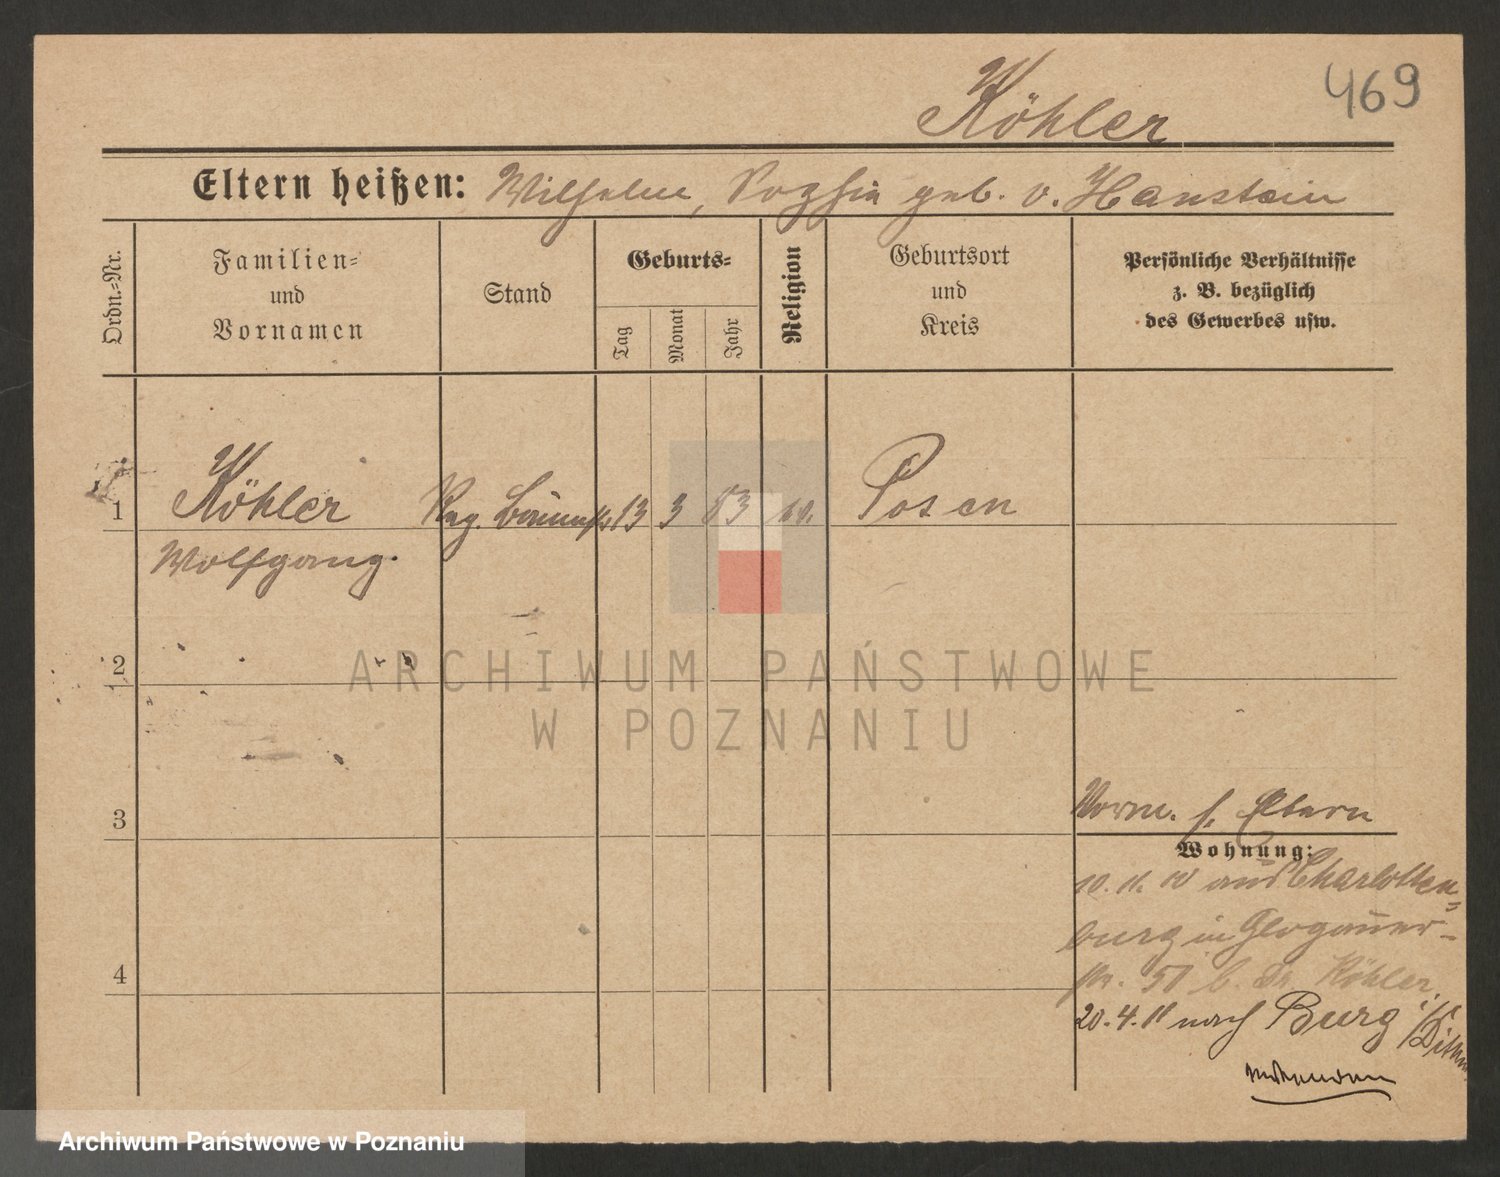 469
Köhler
Eltern heißen: Wilhelm, Sophie geb. v. Hanstein
Ordn.-Nr.
Familien-
und
Vornamen
Stand
Geburts-
Tag
Monat
Jahr
Religion
Geburtsort
und
Kreis
Persönliche Verhältnisse
z. B. bezüglich
des Gewerbes usw.
1 Köhler Reg. 13 3 83 ev. Posen
Wolfgang.
2
ARCHIWUM PAŃSTWOWE
W POZNANIU
3
Vorm. s. Eltern
Wohnung:
10. 11. 10 aus Charlotten-
burg in Glogauer-
str. 51 b. Dr. Köhler.
4
20. 4. 11 nach Burg i/
Archiwum Państwowe w Poznaniu